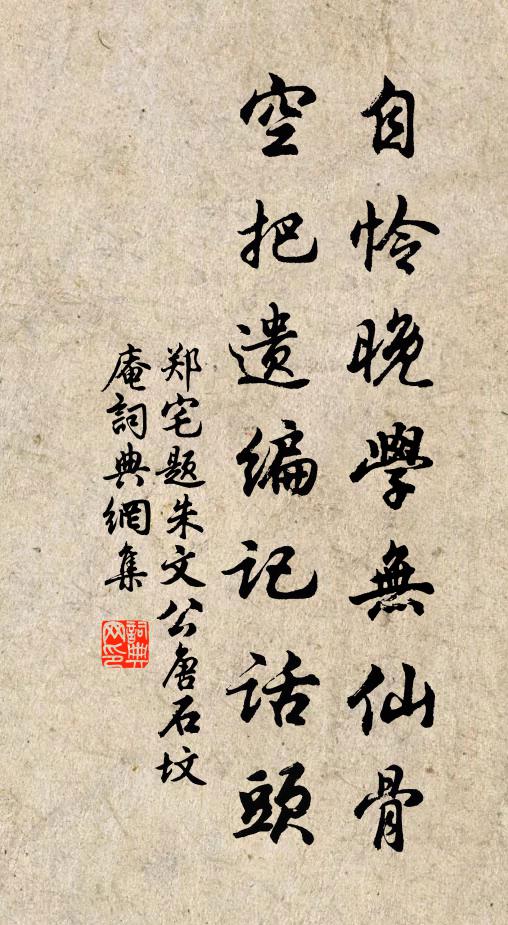 自怜晚學無仙骨
空把遗编记话頭
郑宅题朱文公唐石坟
庵詞典網集
詞典網印